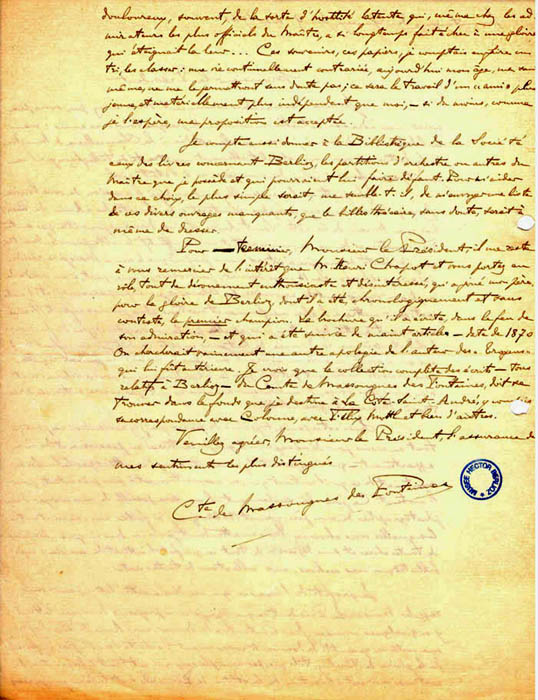 douloureux, souvent, de la sorte d'hostilité latente qui, même chez les ad-
mirateurs les plus officiels du Maître, a si longtemps fait échec à une gloire
qui éteignait la leur... Ces souvenirs, ces papiers, je comptais
les classer: une vie continuellement contrariée, aujourd'hui mon âge, ma santé
même, ne me le permettront sans doute pas; ce sera le travail d'un ami plus
jeune, et matériellement plus indépendant que moi, – si du moins, comme
je l'espère, ma proposition est acceptée.
Je compte aussi donner à la Bibliothèque de la Société
ceux des livres concernant Berlioz, les partitions d'orchestre ou autres du
Maître que je possède et qui pourraient lui faire défaut. Pour m'aider
dans ce choix, le plus simple serait, me semble-t-il, de m'envoyer une liste
de ces divers ouvrages manquants, que le bibliothécaire, sans doute, serait à
même de dresser.
Pour terminer, Monsieur le Président, il me reste
à vous remercier de l'intérêt que M. Henri Chapot et vous portez au
rôle, tout de dévouement enthousiaste et désintéressé, qui a pu mon père,
pour la gloire de Berlioz, dont il a été, chronologiquement et sans
conteste, le premier champion. La brochure qu'il a écrite, dans le feu de
son admiration, – et qui a été suivie de maint articles – date de 1870
On chercherait vainement une autre apologie de l'auteur des Troyens
qui lui fut antérieure. Je crois que la collection complète des écrits – tous
relatifs à Berlioz – du Comte de Massougnes des Fontaines, doit se
trouver dans le fonds que je destine à La Côte Saint-André, y compris
sa correspondance avec Colonne, avec Félix Mottl et bien d'autres.
Veuillez agréer, Monsieur le Président, l'assurance de
mes sentiments les plus distingués
Cte de Massougnes des Fontaines
MUSÉE HECTOR BERLIOZ